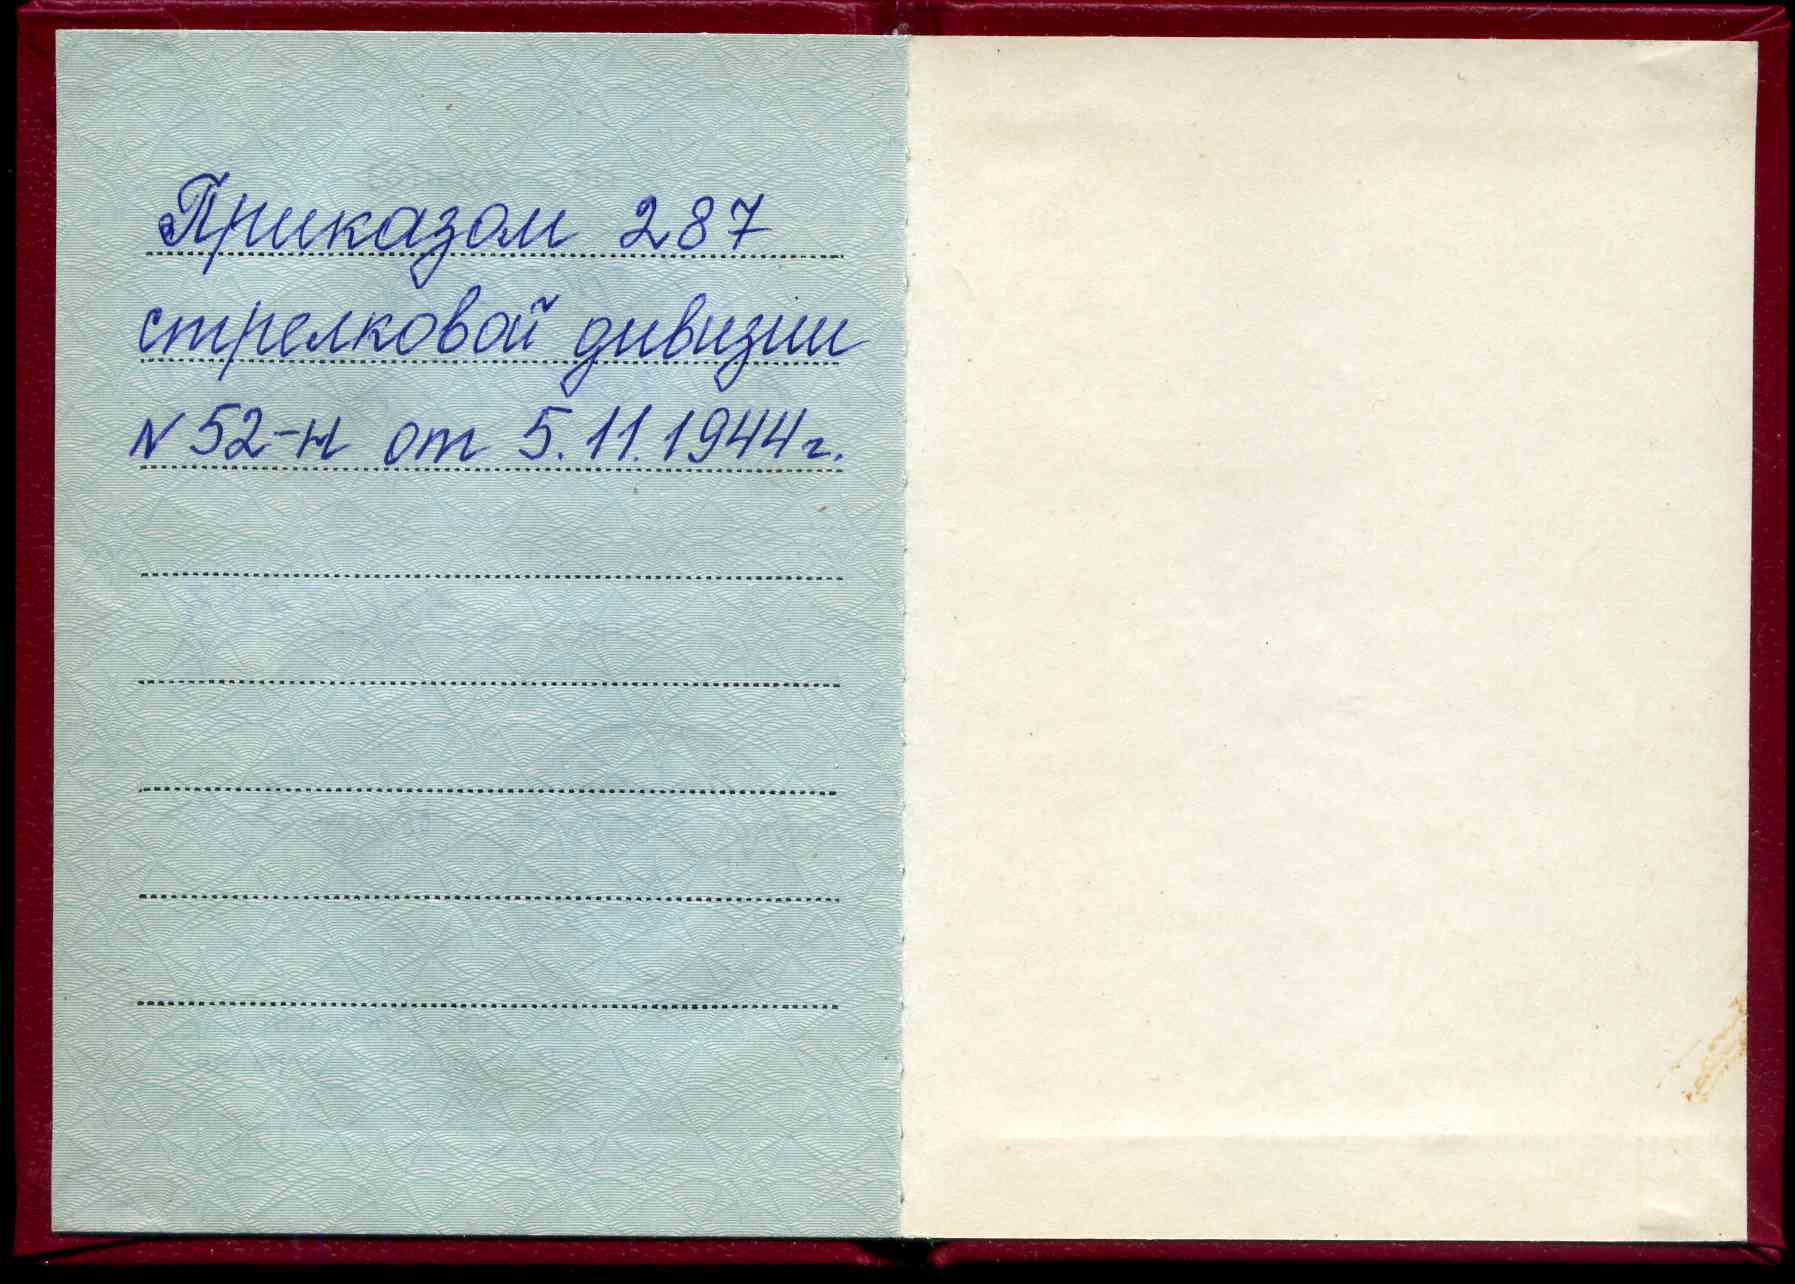 Приказом 287
стрелковой дивизии
N 52-н от 5.11.1944 г.